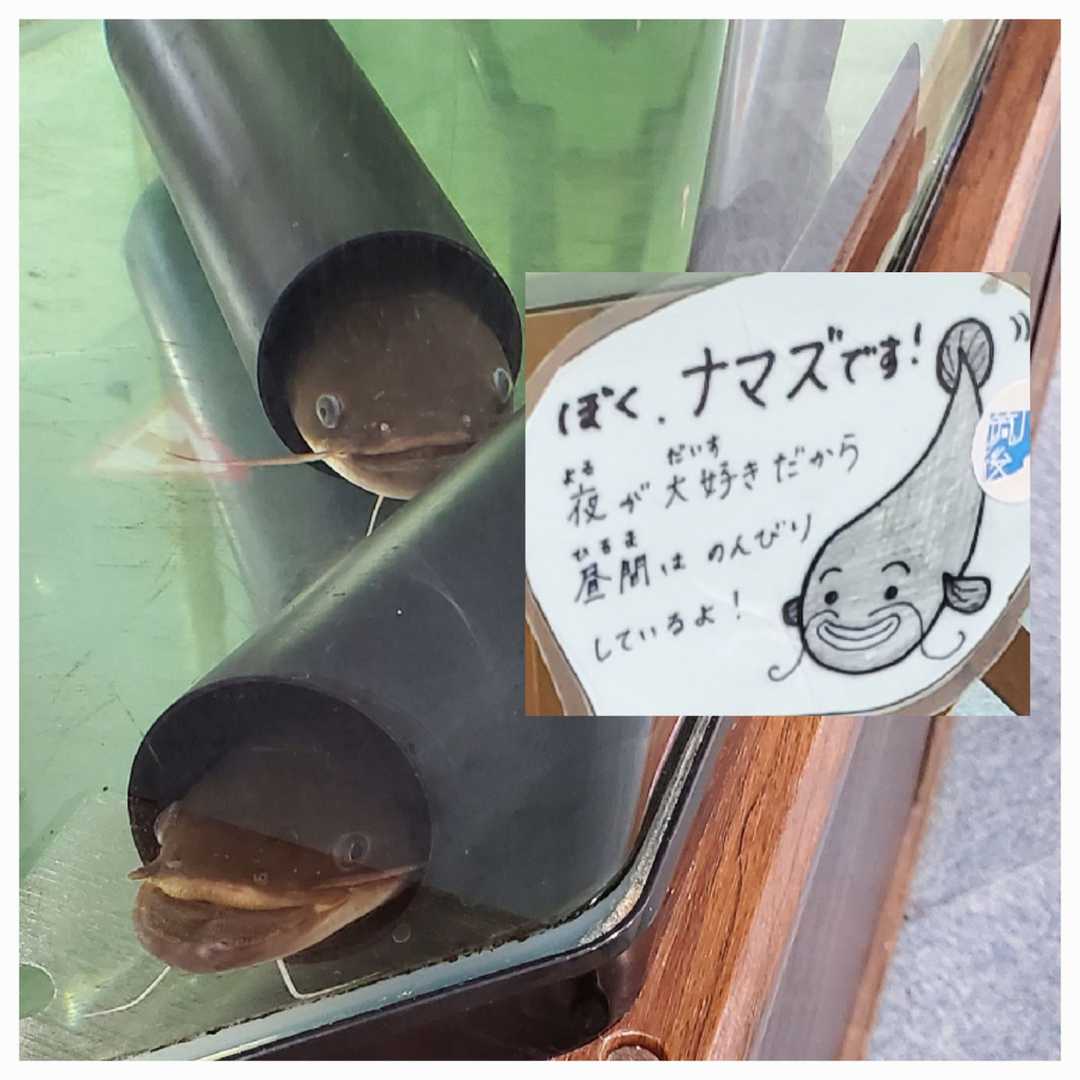 ぼく、ナマズです!
よる だいす
夜が大好きだから
ひるま
昼間はのんびり
しているよ!